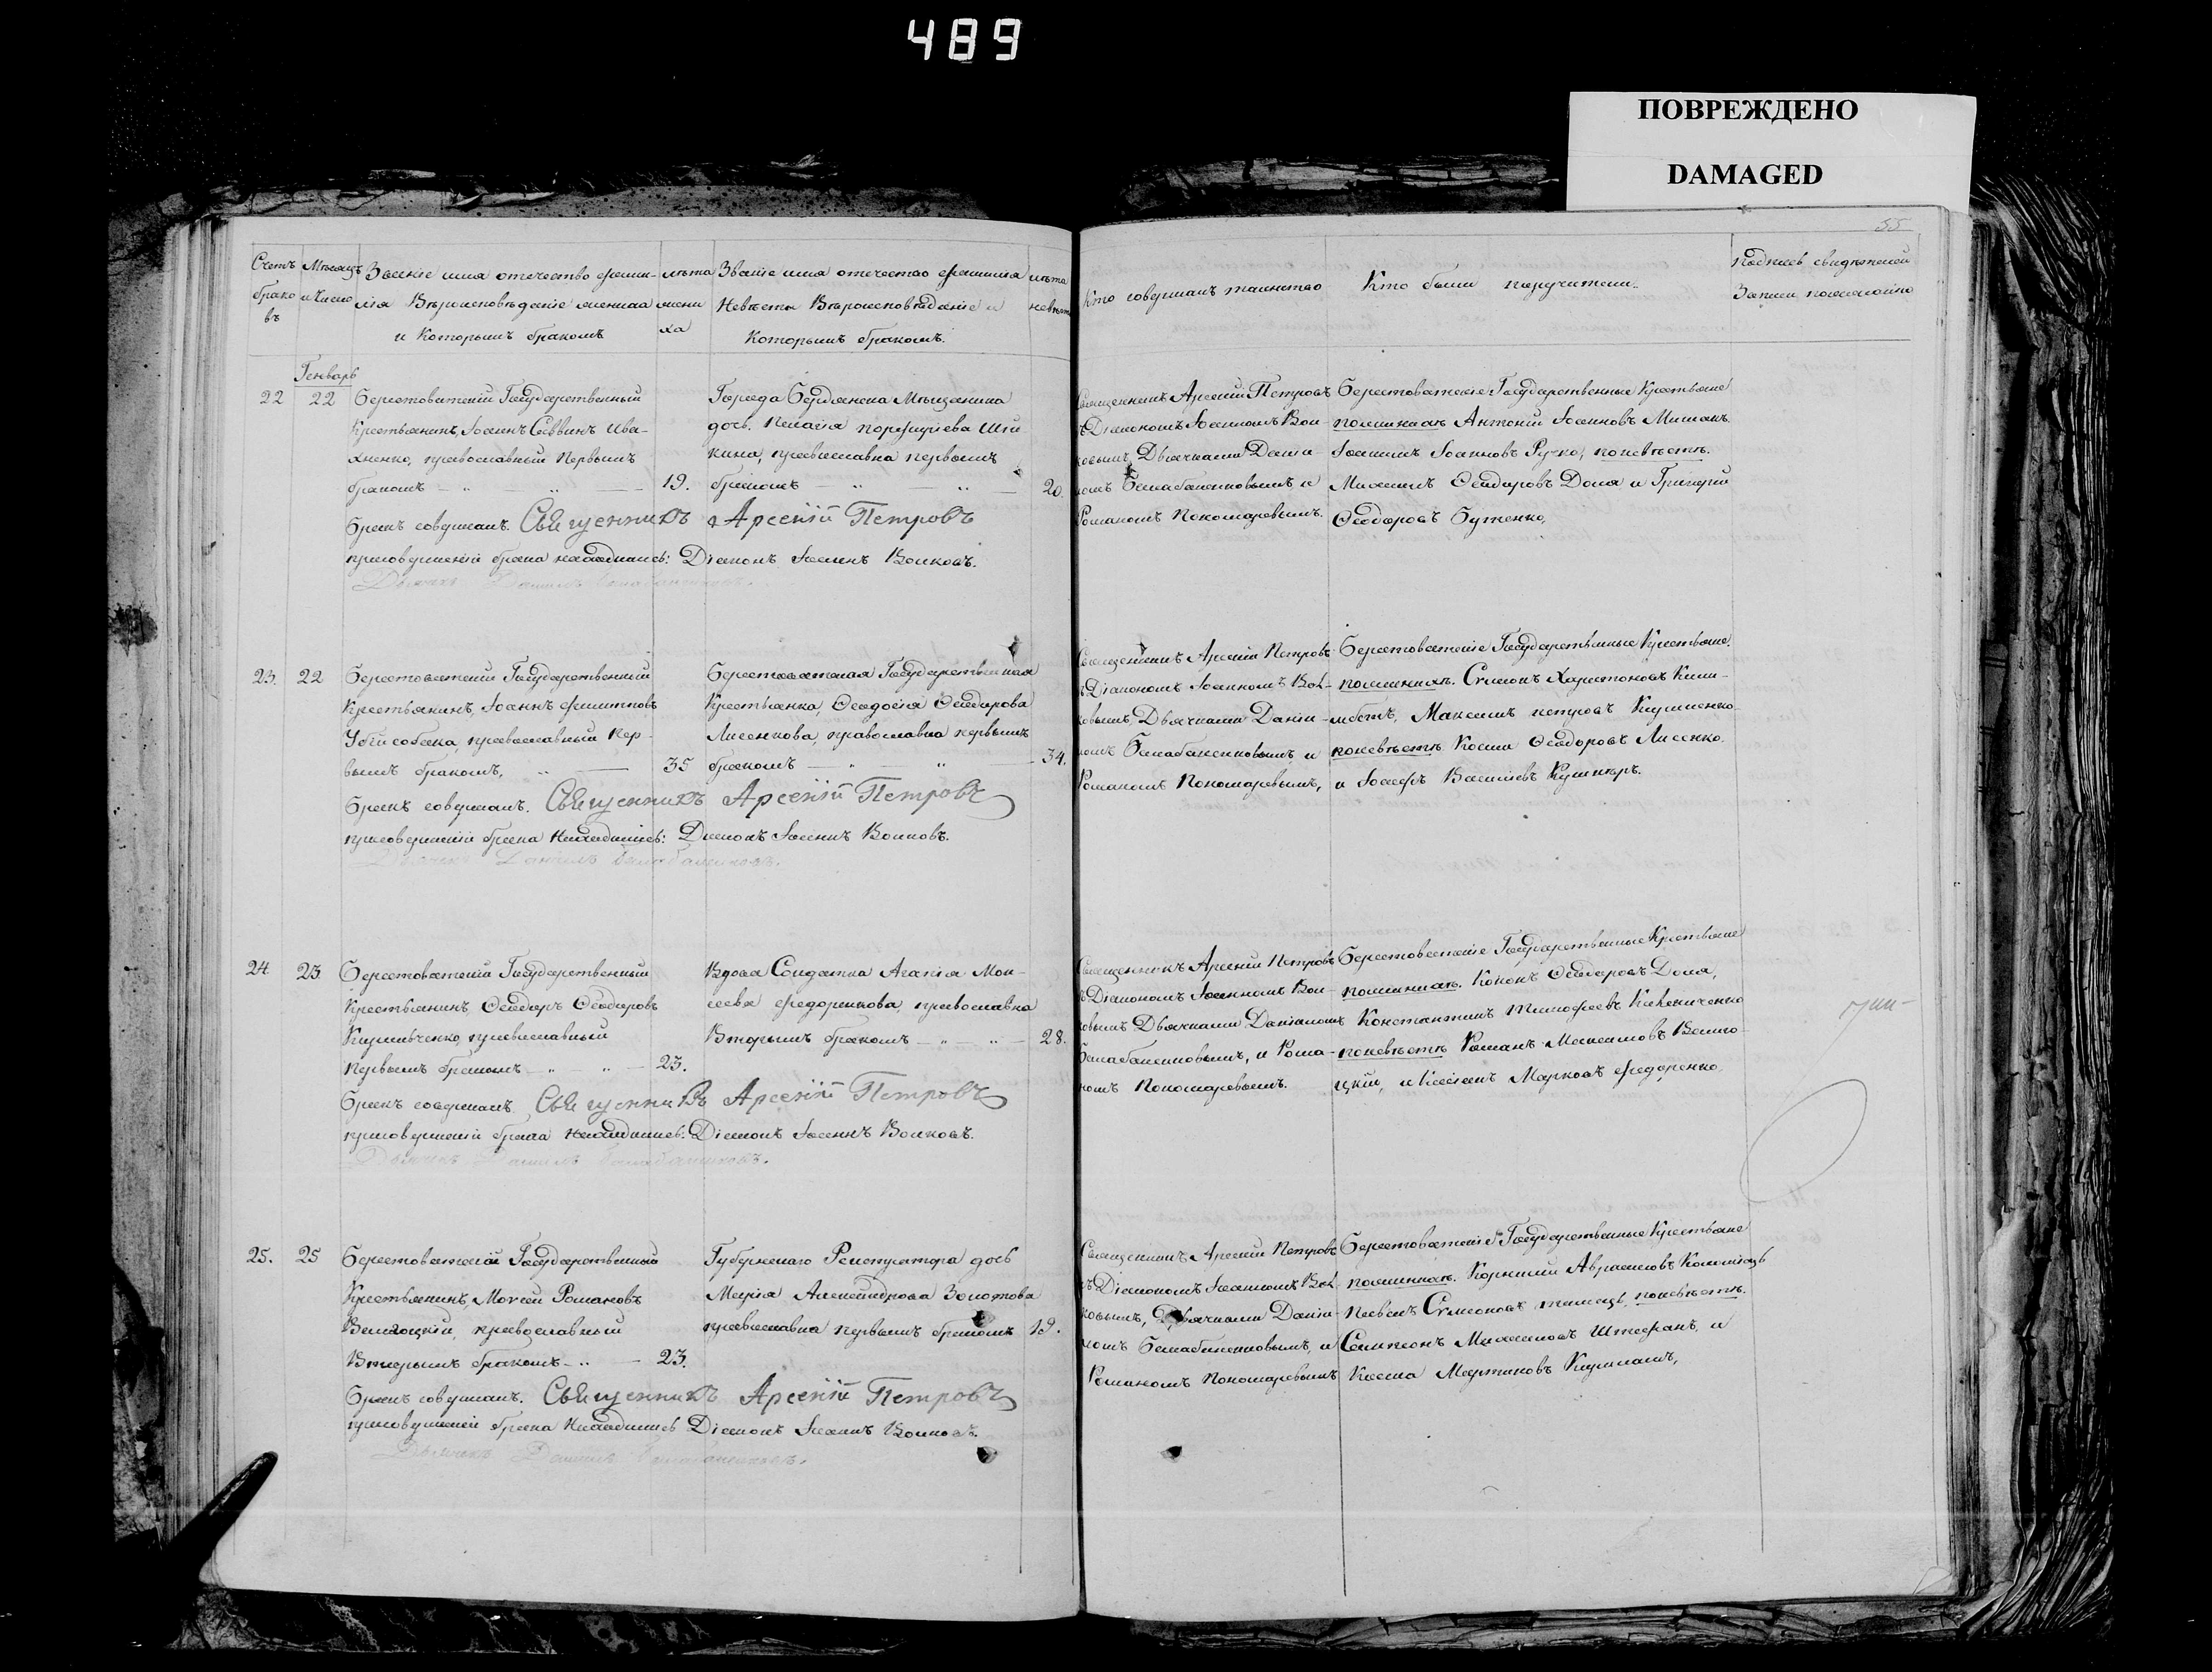 489
ПОВРЕЖДЕНО
DAMAGED
55
Счетъ браковъ
Мѣсяцъ и Число
Званіе имя отечество фамилія Вѣроисповѣданіе жениха и Которымъ бракомъ
лѣта жениха
Званіе имя отечество фамилія Невѣсты Вѣроисповѣданіе и Которымъ бракомъ.
лѣта невѣсты
Кто совершалъ таинство
Кто были поручители.
Подпись свидѣтелей Записи пожеланію
Генварь
22
22
Берестоватскій Государственный
Крестьянинъ, Іоаннъ Саввинъ Ива-
хненко, православный Первымъ
бракомъ — „ — „ — 19.
Города Бердянска Мѣщанина
дочь. Пелагія Порфиріева
кина, православна первымъ
бракомъ — „ — „ — 20.
Священникъ Арсеній Петровъ
съ Діакономъ Іоанномъ Вол-
ковымъ, Дьячками Дані-
ломъ Балабаненковымъ и
Романомъ Пономаревымъ.
Берестоватскіе Государственные Крестьяне
пожениху Антоній Іоанновъ
Іоаннъ Іоанновъ Ручко, поневѣстѣ.
Михаилъ Ѳеодоровъ Доля и Григорій
Ѳеодоровъ Бутенко,
Бракъ совершалъ. Священникъ Арсеній Петровъ
присовершеніи брака находились: Діаконъ Іоаннъ Волковъ.
Дьячекъ Даніилъ Балабаненковъ.
23.
22
Берестоватскій Государственный
Крестьянинъ, Іоаннъ Филиповъ
православный Пер-
вымъ бракомъ, „ — 35
Берестоватская Государственная
Крестьянка, Ѳеодосія Ѳеодорова
Лисенкова, православна первымъ
бракомъ — „ — „ — 34.
Священникъ Арсеній Петровъ
съ Діакономъ Іоанномъ Вол-
ковымъ, Дьячками Дані-
ломъ Балабаненковымъ, и
Романомъ Пономаревымъ,
Берестоватскіе Государственные Крестьяне.
пожениху. Симеонъ Харитоновъ
Максимъ Петровъ
поневѣстѣ Косма Ѳеодоровъ Лисенко.
и Іосифъ Василіевъ Кушниръ.
Бракъ совершалъ. Священникъ Арсеній Петровъ
присовершеніи брака Находились: Діаконъ Іоаннъ Волковъ.
Дьячекъ Даніилъ Балабаненковъ.
24
23
Берестоватскій Государственный
Крестьянинъ, Ѳеодоръ Ѳеодоровъ
православный
Первымъ бракомъ — „ „ — 23.
Вдова Солдатка Агапія Мои-
сеева Федоренкова, православна
Вторымъ бракомъ — „ — „ — 28.
Священникъ Арсеній Петровъ
съ Діакономъ Іоанномъ Вол-
ковымъ Дьячками Даніиломъ
Балабаненковымъ, и Рома-
номъ Пономаревымъ.
Берестоватскіе Государственные Крестьяне
пожениху. Кононъ Ѳеодоровъ Доля,
Константинъ Тимофеевъ
поневѣстѣ Романъ Максимовъ Велиго-
цкій, и Касіанъ Марковъ Федоренко.
Бракъ совершалъ. Священникъ Арсеній Петровъ
присовершеніи брака Находились: Діаконъ Іоаннъ Волковъ.
Дьячекъ Даніилъ Балабаненковъ.
25.
25
Берестоватскій Государственный
Крестьянинъ, Моисей Романовъ
Велигоцкій, православный
Вторымъ бракомъ — „ — 23.
Губернскаго Регистратора дочь
Марія Александрова Золотова
православна первымъ бракомъ 19.
Священникъ Арсеній Петровъ
съ Діакономъ Іоанномъ Вол-
ковымъ, Дьячками Дані-
ломъ Балабаненковымъ, и
Романомъ Пономаревымъ
Берестоватскіе Государственные Крестьяне
пожениху. Корнилій Аврамовъ Коломіецъ
Павелъ Симеоновъ поневѣстѣ.
Самсонъ Михаиловъ Штефанъ, и
Косма Мартиновъ
Бракъ совершалъ. Священникъ Арсеній Петровъ
присовершеніи брака Находились Діаконъ Іоаннъ Волковъ.
Дьячекъ Даніилъ Балабаненковъ.